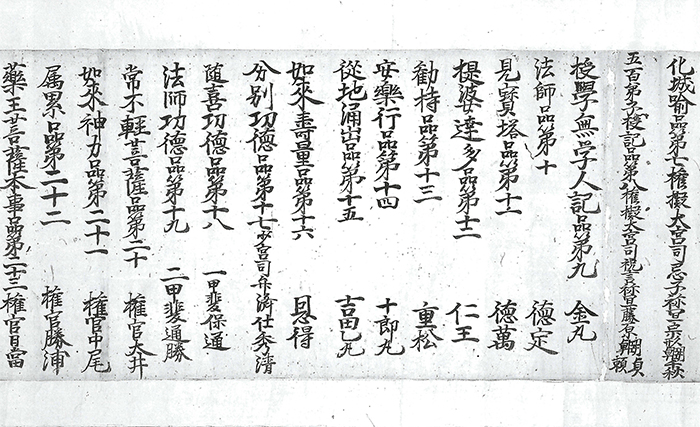 化城喩品第七 権擬大宮司
五百弟子授記品第八 権擬大宮司 藤原
授學無学人記品第九 金丸
法師品第十 徳定
見寳塔品第十一 徳萬
提婆達多品第十二 仁王
勧持品第十三 重松
安樂行品第十四 十郎丸
從地涌出品第十五 吉田乙丸
如來壽量品第十六 恩得
分別功徳品第十七 少宮司弁済仕秀清
随喜功徳品第十八 一甲斐保通
法師功徳品第十九 二甲斐通勝
常不軽菩薩品第二十 権官大井
如來神力品第二十一 権官中尾
属累品第二十二 権官勝浦
藥王菩薩本事品第二十三 権官